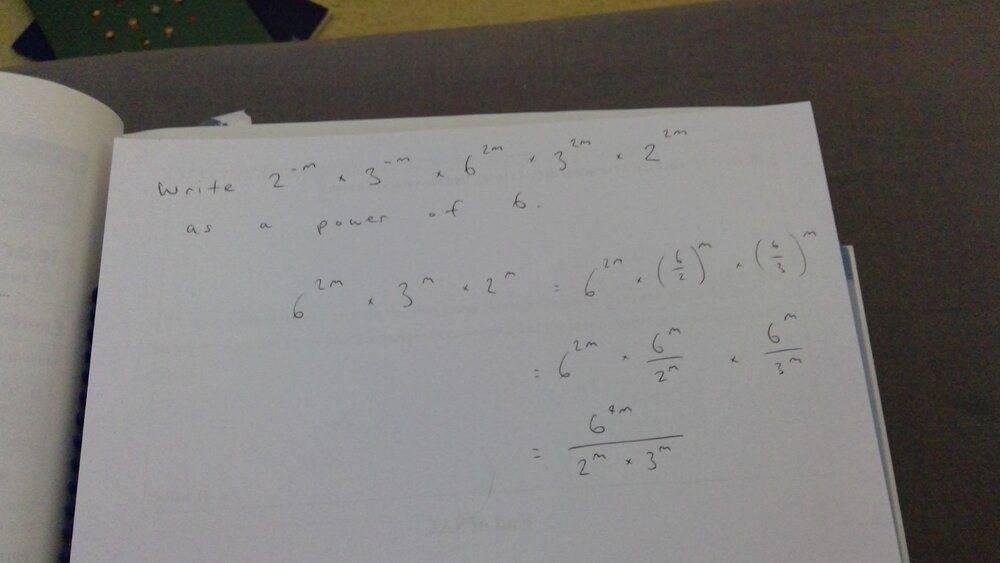 Write 2^-m × 3^-m × 6^2m × 3^2m × 2^2m
as a power of 6.
6^2m × 3^m × 2^m = 6^2m × (6/2)^m × (6/3)^m
= 6^2m × 6^m/2^m × 6^m/3^m
= 6^4m / 2^m × 3^m